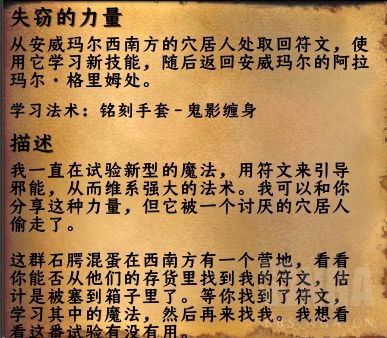 失窃的力量
从安威玛尔西南方的穴居人处取回符文，使
用它学习新技能，随后返回安威玛尔的阿拉
玛尔·格里姆处。
学习法术：铭刻手套-鬼影缠身
描述
我一直在试验新型的魔法，用符文来引导
邪能，从而维系强大的法术。我可以和你
分享这种力量，但它被一个讨厌的穴居人
偷走了。
这群石腭混蛋在西南方有一个营地，看看
你能否从他们的存货里找到我的符文，估
计是被塞到箱子里了。等你找到了符文，
学习其中的魔法，然后再来找我。我想看
看这番试验有没有用。